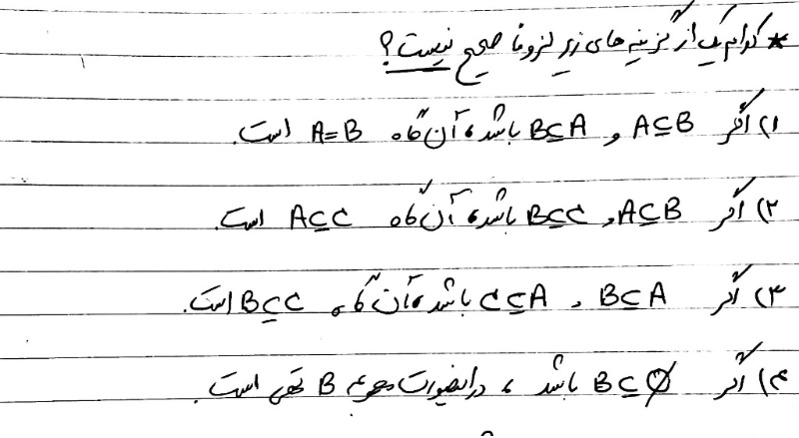 * کدام یک از گزینه های زیر لزوماً صحیح نیست؟
۱) اگر A⊆B و B⊆A باشد، آن گاه A=B است.
۲) اگر A⊆B و B⊆C باشد، آن گاه A⊆C است.
۳) اگر B⊆A و C⊆A باشد، آن گاه B⊆C است.
۴) اگر B⊆∅ باشد، در اینصورت مجموعه B تهی است.